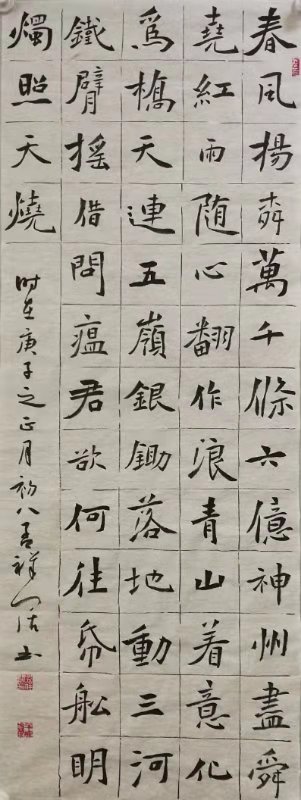 春風揚柳萬千條六億神州盡舜
堯紅雨随心翻作浪青山着意化
爲橋天連五嶺銀鋤落地動三河
鐵臂摇借問瘟君欲何往帋船明
燭照天燒
时在庚子之正月初八